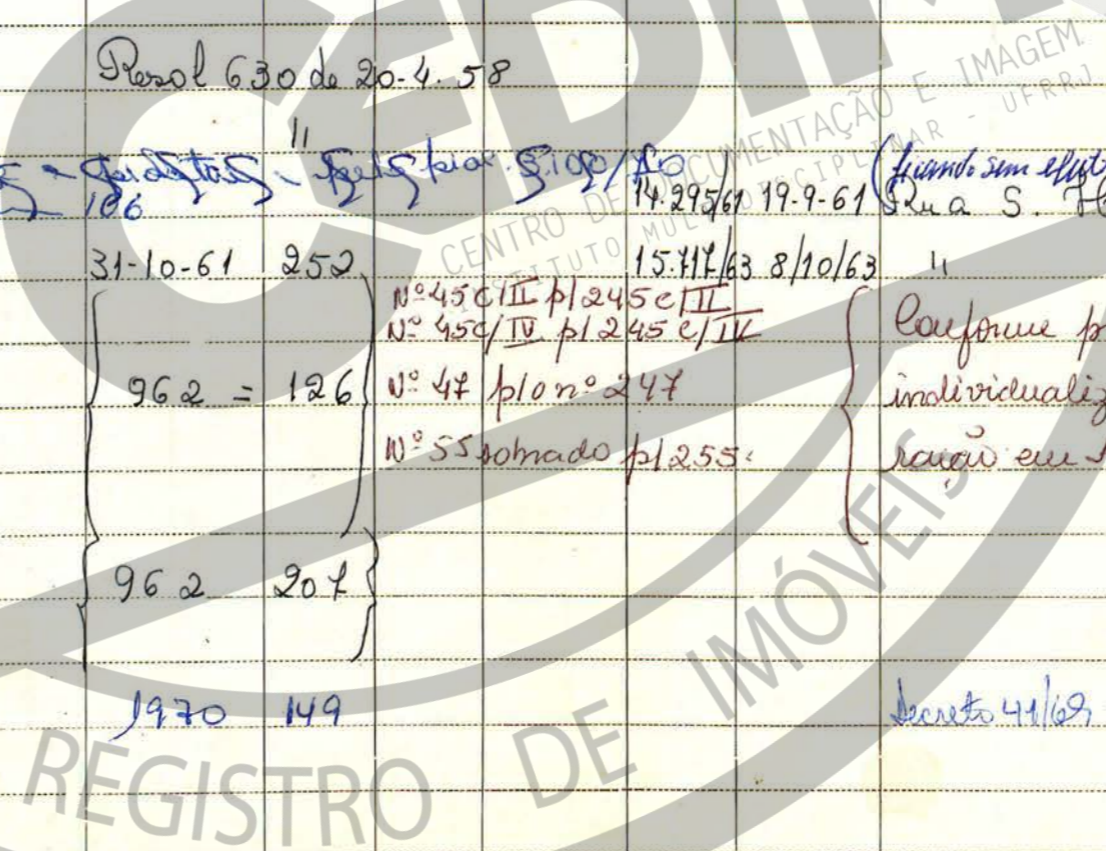 Resol 630 de 20-4-58
"
106 14.295/61 19-9-61 (ficando sem efeito
Rua S.
31-10-61 252 15.717/63 8/10/63 "
Nº 45 C/II p/ 245 C/II
Nº 45C/IV p/ 245 C/IV
962 = 126 Nº 47 p/o nº 247
Nº 55 sobrado p/255.
Conforme
individualiz
ração em
962 207
1970 149 Decreto 41/69
CENTRO DE DOCUMENTAÇÃO E IMAGEM
INSTITUTO MULTIDISCIPLINAR - UFRRJ
REGISTRO DE IMÓVEIS